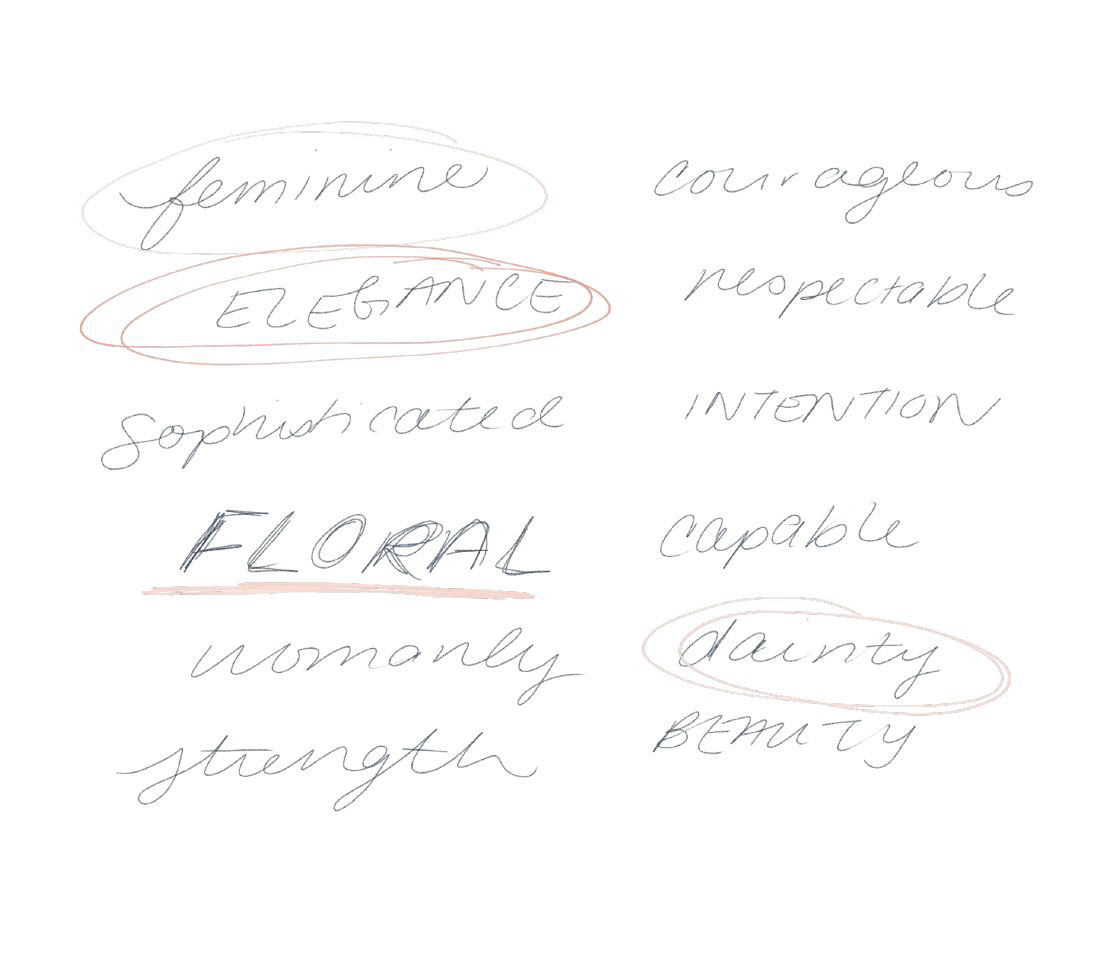 feminine
ELEGANCE
sophisticated
FLORAL
womanly
strength
courageous
respectable
INTENTION
capable
dainty
BEAUTY